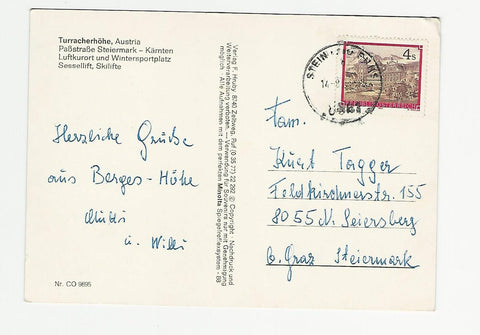 Turracherhöhe, Austria
Paßstraße Steiermark – Kärnten
Luftkurort und Wintersportplatz
Sessellift, Skilifte
Herzliche Grüße
aus Berges-Höhe
u. Willi
Nr. CO 9695
Verlag F. Hruby, 8740 Zeltweg, Ruf (0 35 77) 22 292 © Copyright · Nachdruck und
Weiterverarbeitung verboten. — Verwendung für Souvenirs nur mit Genehmigung
möglich · Alle Aufnahmen mit dem perfekten Minolta Spiegelreflexsystem - 88
4 S
REPUBLIK ÖSTERREICH
STEIN
14-8
Fam.
Kurt Tagger
Feldkirchnerstr. 155
8055 N. Seiersberg
b. Graz Steiermark